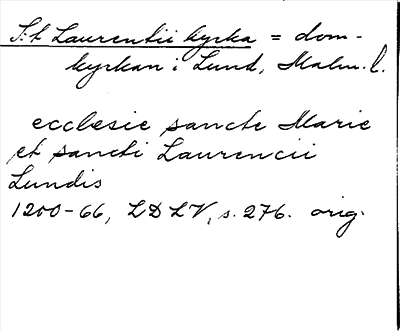 S:t Laurentii kyrka = dom-
kyrkan i Lund, Malm. l.
ecclesie sancte Marie
et sancti Laurencii
Lundis
1200-66, LDLV, s. 276. orig.